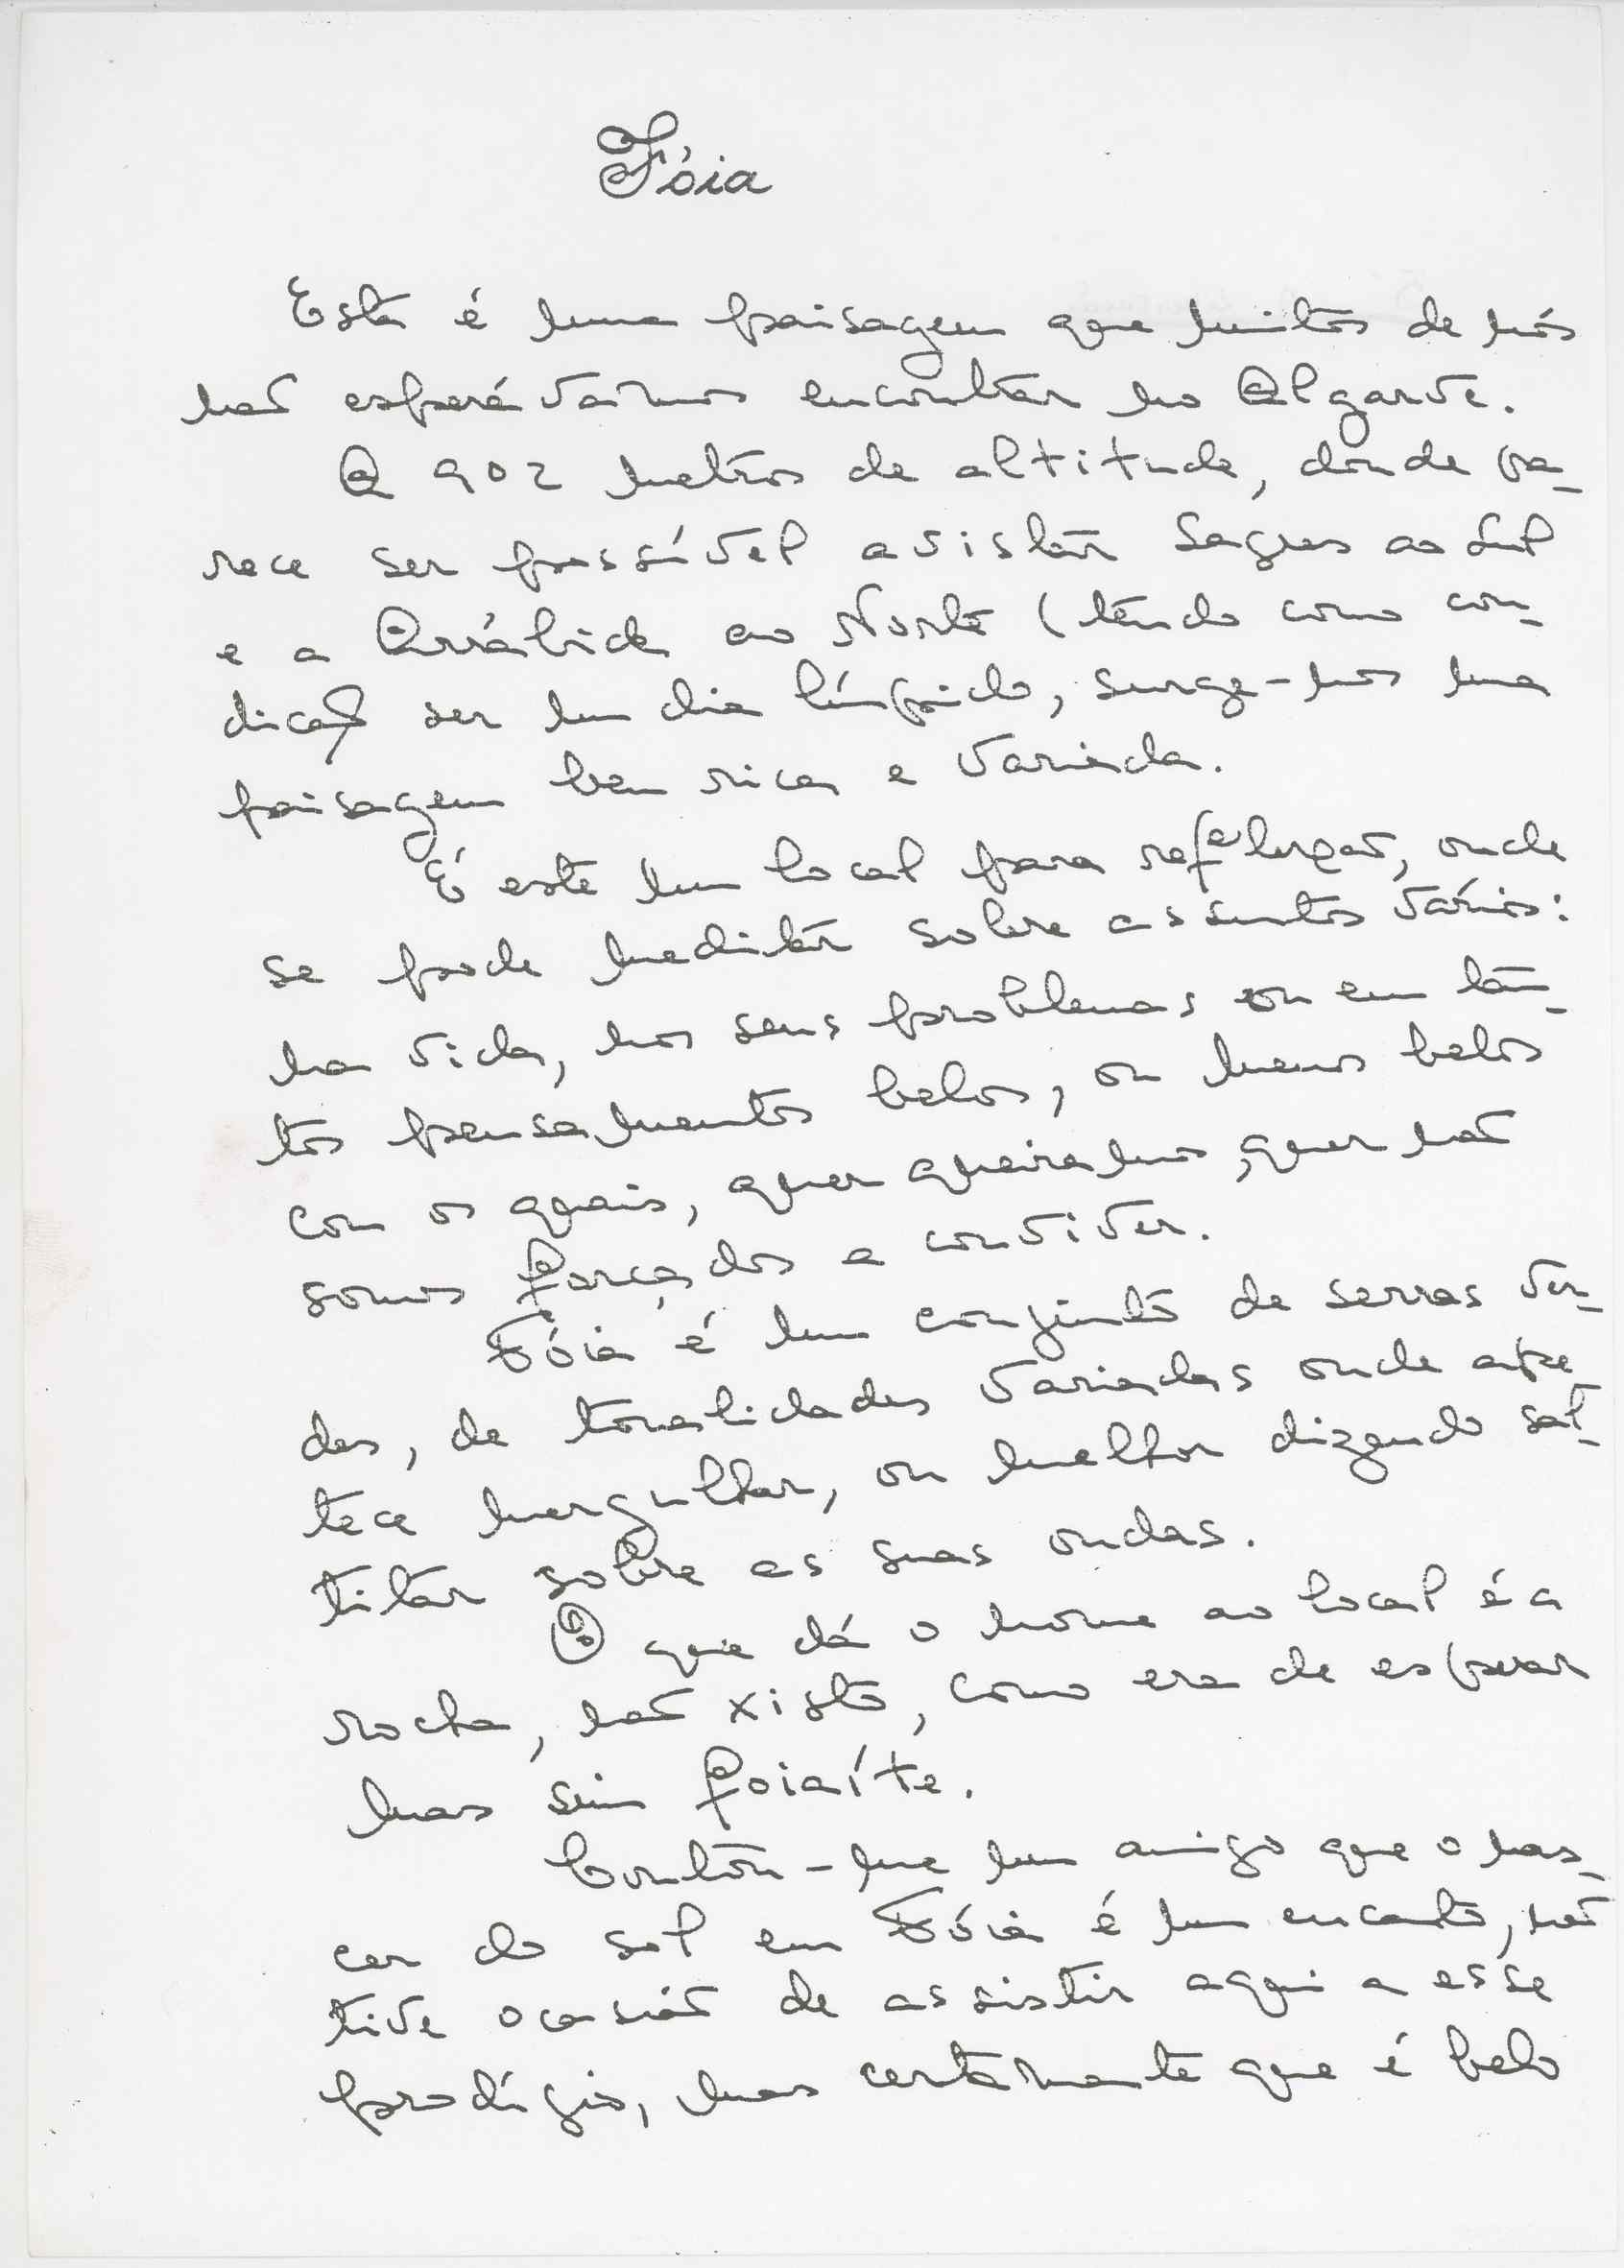 Fóia
Esta é uma paisagem que muitos de nós
não esperávamos encontrar no Algarve.
A 902 metros de altitude, donde pa-
rece ser possível avistar Sagres ao Sul
e a Arrábida ao Norte (tendo como con-
dição ser um dia límpido, surge-nos uma
paisagem bem rica e variada.
É este um local para reflexão, onde
se pode meditar sobre assuntos vários:
na vida, nos seus problemas ou em tan-
tos pensamentos belos, ou menos belos
com os quais, quer queiramos, quer não
somos forçados a conviver.
Fóia é um conjunto de serras ver-
des, de tonalidades variadas onde ape-
tece mergulhar, ou melhor dizendo sal-
titar sobre as suas ondas.
O que dá o nome ao local é a
rocha, não xisto, como era de esperar
mas sim foiaíte.
Contou-me um amigo que o nas-
cer do sol em Fóia é um encanto, não
tive ocasião de assistir aqui a esse
prodígio, mas certamente que é belo